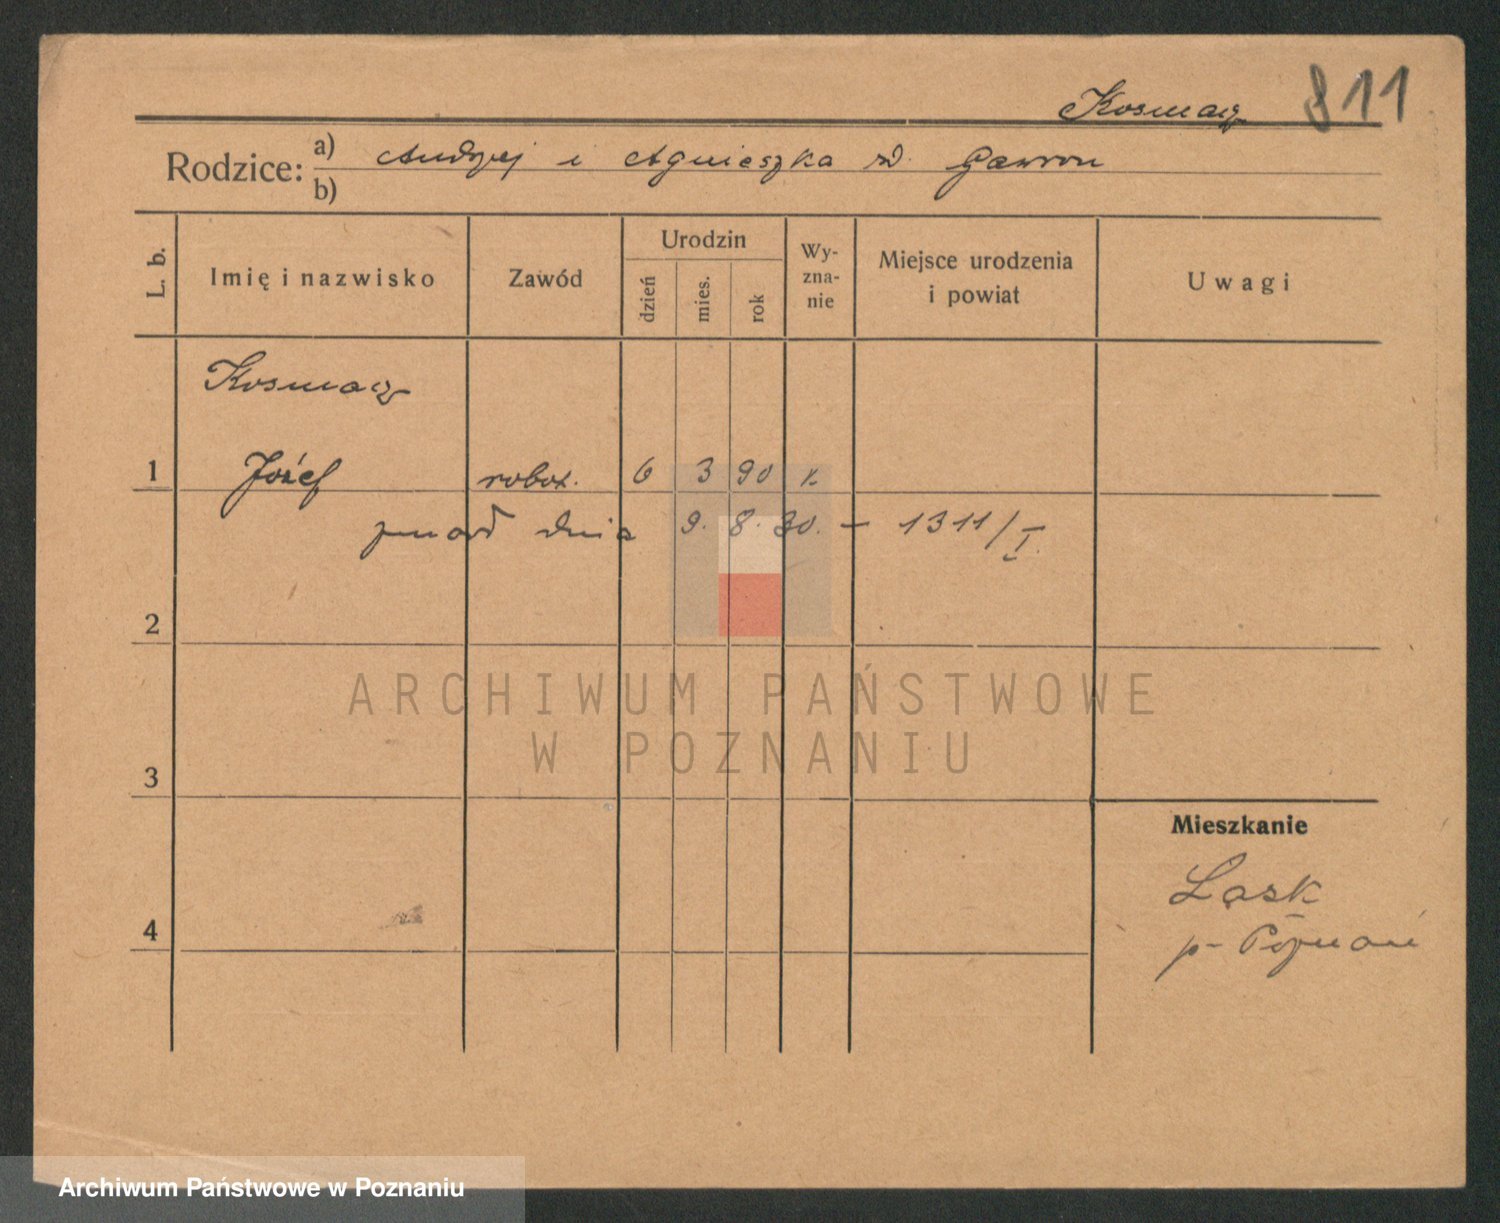 Kosmacz 811
Rodzice: a) Andrzej i Agnieszka zd. Gawron
b)
L. b.
Imię i nazwisko
Zawód
Urodzin
dzień
mies.
rok
Wy-
zna-
nie
Miejsce urodzenia
i powiat
Uwagi
Kosmacz
1 Józef robot. 6 3 90 k.
zmarł dnia 9. 8. 30. – 1311/I.
2
ARCHIWUM PAŃSTWOWE
W POZNANIU
3
Mieszkanie
Lask
p- Poznań
4
Archiwum Państwowe w Poznaniu